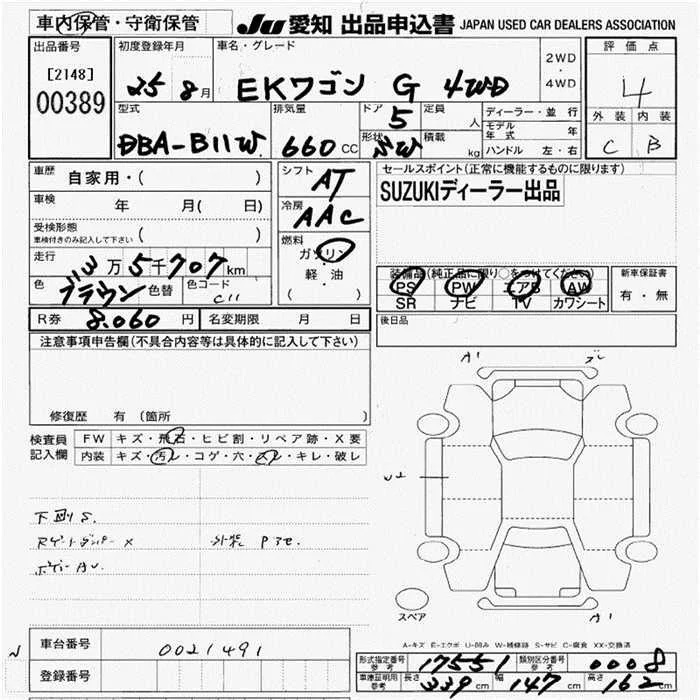 車内保管・守衛保管
JU 愛知 出品申込書 JAPAN USED CAR DEALERS ASSOCIATION
出品番号
[2148]
00389
初度登録年月
25 8月
車名・グレード
EKワゴン G 4WD
2WD
・
4WD
評価点
4
外装 内装
C B
型式
DBA-B11W
排気量
660 CC
ドア
5
形状
SW
定員
人
積載
kg
ディーラー・並行
モデル年式 年
ハンドル 左・右
車歴 自家用・( )
車検 年 月( 日)
受検形態
車検付きのみ記入して下さい ( )
走行 3万5千707km
色 ブラウン 色替 色コード C11
シフト
AT
冷房
AAC
燃料
ガソリン
・
軽・油
( )
セールスポイント(正常に機能するものに限ります)
SUZUKIディーラー出品
装備品(純正品に限り○をつけてください)
PS PW エアB AW
SR ナビ TV カワシート
新車保証書
有・無
R券 8.060 円 名変期限 月 日
後日品
注意事項申告欄(不具合内容等は具体的に記入して下さい)
修復歴 有 (箇所 )
検査員記入欄
FW キズ・飛石・ヒビ割・リペア跡・X要
内装 キズ・汚レ・コゲ・穴・スレ・キレ・破レ
A1
下回りS.
X
A1
スペア
A-キズ E-エクボ U-凹み W-補修跡 S-サビ C-腐食 XX-交換済
車台番号 0021491
登録番号
形式指定番号 参考 17551 類別区分番号 参考 0008
車庫証明用 参考 長さ 339 cm 幅 147 cm 高さ 162 cm